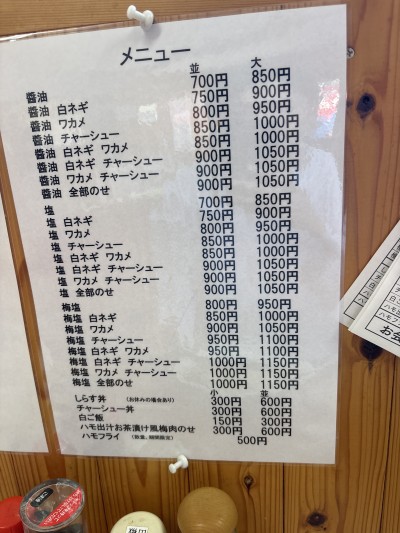 メニュー
並 大
醤油 700円 850円
醤油 白ネギ 750円 900円
醤油 ワカメ 800円 950円
醤油 チャーシュー 850円 1000円
醤油 白ネギ ワカメ 850円 1000円
醤油 白ネギ チャーシュー 900円 1050円
醤油 ワカメ チャーシュー 900円 1050円
醤油 全部のせ 900円 1050円
塩 700円 850円
塩 白ネギ 750円 900円
塩 ワカメ 800円 950円
塩 チャーシュー 850円 1000円
塩 白ネギ ワカメ 850円 1000円
塩 白ネギ チャーシュー 900円 1050円
塩 ワカメ チャーシュー 900円 1050円
塩 全部のせ 900円 1050円
梅塩 800円 950円
梅塩 白ネギ 850円 1000円
梅塩 ワカメ 900円 1050円
梅塩 チャーシュー 950円 1100円
梅塩 白ネギ ワカメ 950円 1100円
梅塩 白ネギ チャーシュー 1000円 1150円
梅塩 ワカメ チャーシュー 1000円 1150円
梅塩 全部のせ 1000円 1150円
小 並
しらす丼 (お休みの場合あり) 300円 600円
チャーシュー丼 300円 600円
白ご飯 150円 300円
ハモ出汁お茶漬け風梅肉のせ 300円 600円
ハモフライ (数量、期間限定) 500円